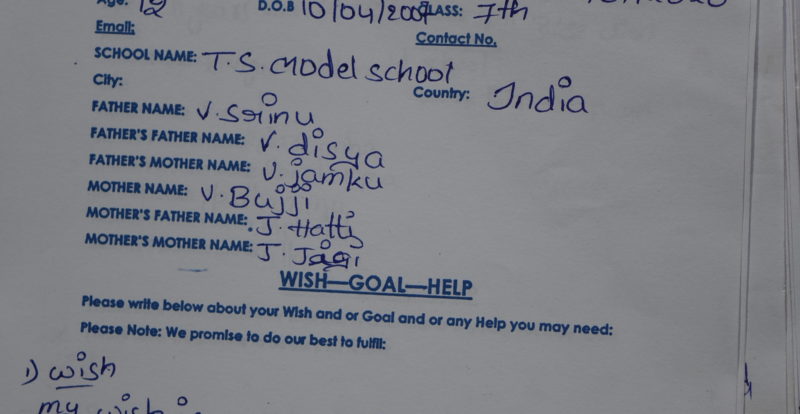 Age: 12 D.O.B 10/04/2007 CLASS: 7th
Email: Contact No.
SCHOOL NAME: T.S. model school
City: Country: India
FATHER NAME: V. Srinu
FATHER'S FATHER NAME: V. disya
FATHER'S MOTHER NAME: V. jamku
MOTHER NAME: V. Bujji
MOTHER'S FATHER NAME: J. Hatti
MOTHER'S MOTHER NAME: J. Jagi
WISH—GOAL—HELP
Please write below about your Wish and or Goal and or any Help you may need:
Please Note: We promise to do our best to fulfil:
1) wish
my wish